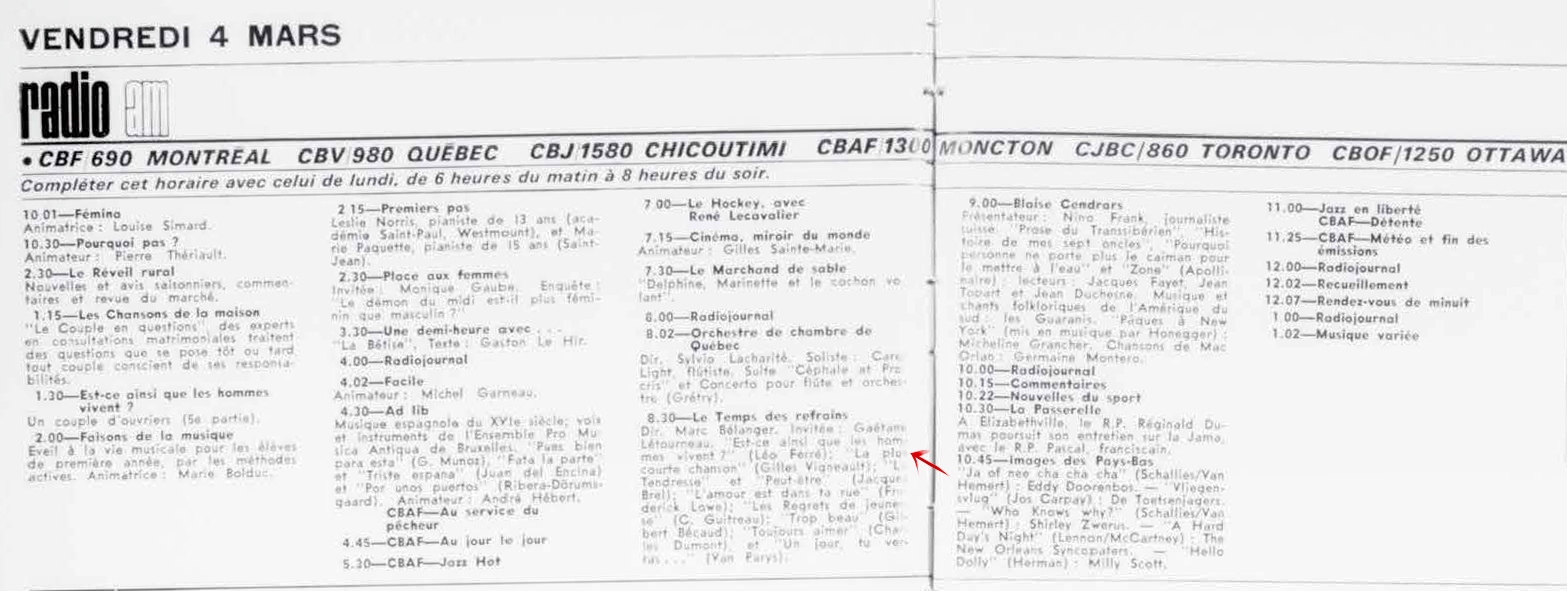 VENDREDI 4 MARS
radio am
• CBF/690 MONTRÉAL CBV/980 QUÉBEC CBJ/1580 CHICOUTIMI CBAF/1300 MONCTON CJBC/860 TORONTO CBOF/1250 OTTAWA
Compléter cet horaire avec celui de lundi, de 6 heures du matin à 8 heures du soir.
10 01—Fémina
Animatrice : Louise Simard.
10.30—Pourquoi pas ?
Animateur : Pierre Thériault.
2.30—Le Réveil rural
Nouvelles et avis saisonniers, commen-
taires et revue du marché.
1.15—Les Chansons de la maison
"Le Couple en questions", des experts
en consultations matrimoniales traitent
des questions que se pose tôt ou tard
tout couple conscient de ses responsa-
bilités.
1.30—Est-ce ainsi que les hommes
vivent ?
Un couple d'ouvriers (5e partie).
2.00—Faisons de la musique
Eveil à la vie musicale pour les élèves
de première année, par les méthodes
actives. Animatrice : Marie Bolduc.
2 15—Premiers pas
Leslie Norris, pianiste de 13 ans (aca-
démie Saint-Paul, Westmount), et Ma-
rie Paquette, pianiste de 15 ans (Saint-
Jean).
2.30—Place aux femmes
Invitée : Monique Gaube. Enquête :
"Le démon du midi est-il plus fémi-
nin que masculin ?"
3.30—Une demi-heure avec . . .
"La Bêtise", Texte : Gaston Le Hir.
4.00—Radiojournal
4.02—Facile
Animateur : Michel Garneau.
4.30—Ad lib
Musique espagnole du XVIe siècle; voix
et instruments de l'Ensemble Pro Mu-
sica Antiqua de Bruxelles. "Pues bien
para esta" (G. Munoz), "Fata la parte"
et "Triste espana" (Juan del Encina)
et "Por unos puertos" (Ribera-Dorums-
gaard). Animateur : André Hébert.
CBAF—Au service du
pêcheur
4.45—CBAF—Au jour le jour
5.30—CBAF—Jazz Hot
7 00—Le Hockey, avec
René Lecavalier
7.15—Cinéma, miroir du monde
Animateur : Gilles Sainte-Marie.
7.30—Le Marchand de sable
"Delphine, Marinette et le cochon vo
lant".
8.00—Radiojournal
8.02—Orchestre de chambre de
Québec
Dir. Sylvio Lacharité. Soliste : Caro
Light, flûtiste. Suite "Céphale et Pro
cris" et Concerto pour flûte et orches-
tre (Grétry).
8.30—Le Temps des refrains
Dir. Marc Bélanger. Invitée : Gaétane
Létourneau. "Est-ce ainsi que les hom-
mes vivent ?" (Léo Ferré); "La plus
courte chanson" (Gilles Vigneault); "La
Tendresse" et "Peut-être" (Jacques
Brel); "L'amour est dans ta rue" (Fre
derick Lowe); "Les Regrets de jeunes-
se" (C. Guitreau); "Trop beau" (Gil-
bert Bécaud); "Toujours aimer" (Char-
les Dumont), et "Un jour, tu ver-
ras . . ." (Van Parys).
9.00—Blaise Cendrars
Présentateur : Nino Frank, journaliste
suisse. "Prose du Transsibérien", "His-
toire de mes sept oncles", "Pourquoi
personne ne porte plus le caïman pour
le mettre à l'eau" et "Zone" (Apolli-
naire) : lecteurs : Jacques Fayet, Jean
Topart et Jean Duchesne. Musique et
chants folkloriques de l'Amérique du
sud : les Guaranis. "Pâques à New
York" (mis en musique par Honegger) :
Micheline Grancher. Chansons de Mac
Orlan : Germaine Montero.
10.00—Radiojournal
10.15—Commentaires
10.22—Nouvelles du sport
10.30—La Passerelle
A Elizabethville, le R.P. Réginald Du-
mas poursuit son entretien sur la Jama,
avec le R.P. Pascal, franciscain.
10.45—Images des Pays-Bas
"Ja of nee cha cha cha" (Schallies/Van
Hemert) : Eddy Doorenbos. — "Vliegen-
svlug" (Jos Carpay) : De Toetsenjagers.
— "Who Knows why?" (Schallies/Van
Hemert) : Shirley Zwerus. — "A Hard
Day's Night" (Lennon/McCartney) : The
New Orleans Syncopaters. — "Hello
Dolly" (Herman) : Milly Scott.
11.00—Jazz en liberté
CBAF—Détente
11.25—CBAF—Météo et fin des
émissions
12.00—Radiojournal
12.02—Recueillement
12.07—Rendez-vous de minuit
1 00—Radiojournal
1.02—Musique variée